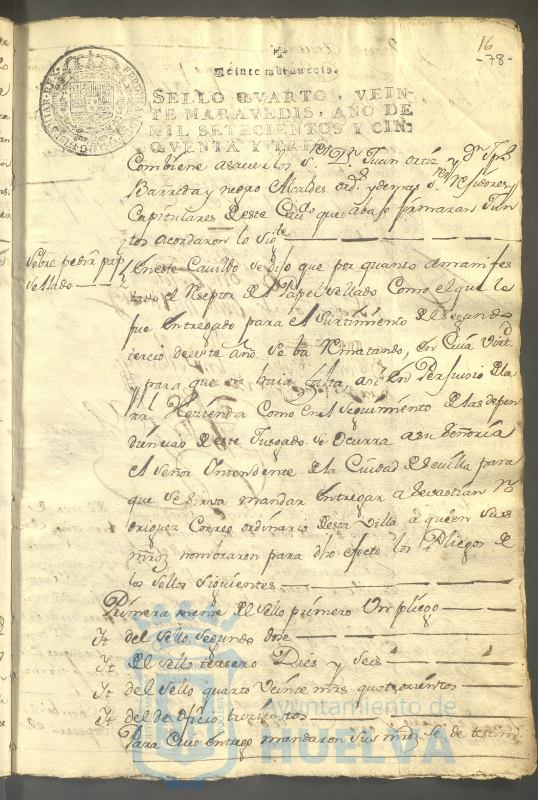 16
-78-
Veinte maravedis.
SELLO QVARTO, VEIN-
TE MARAVEDIS, AÑO DE
MIL SETECIENTOS Y CIN-
QVENTA Y TRES.
Combiene a saver los S.res Dn Juan ortiz y Dn Jph
Barreda y negro Alcaldes ord.s y demas S.res Rexidores y
Capitulares deste Cav.do que abajo firmaran Jun
tos acordaron lo sig.te
Sobre pedir pap.l
sellado
En este Cavildo se dijo que por quanto a manifes
tado el Reseptor del Papel sellado Como el que le
fue entregado para el surtimiento del segundo
tercio de este año se ba Rematando, en Cuia virt.d
y para que no haia falta, asi en Perjuisio de la
R.l Hazienda Como en el seguimiento de las depen
diencias deste Juzgado se ocurra a su señoria
el señor Intendente de la Ciudad de sevilla para
que se sirva mandar entregar a Sevastian
Correo ordinario desta Villa a quien sus
mrds nombraron para dho efecto los Pliegos de
los sellos siguientes
Primeramente del sello primero Un pliego
Yt del sello segundo dose
Yt del sello tersero Dies y seis
Yt del sello quarto veinte mis quatrosientos
Yt del de oficio tresientos
Para Cuio entrego mandaron sus mrds se de testim.o
Ayuntamiento de
HUELVA